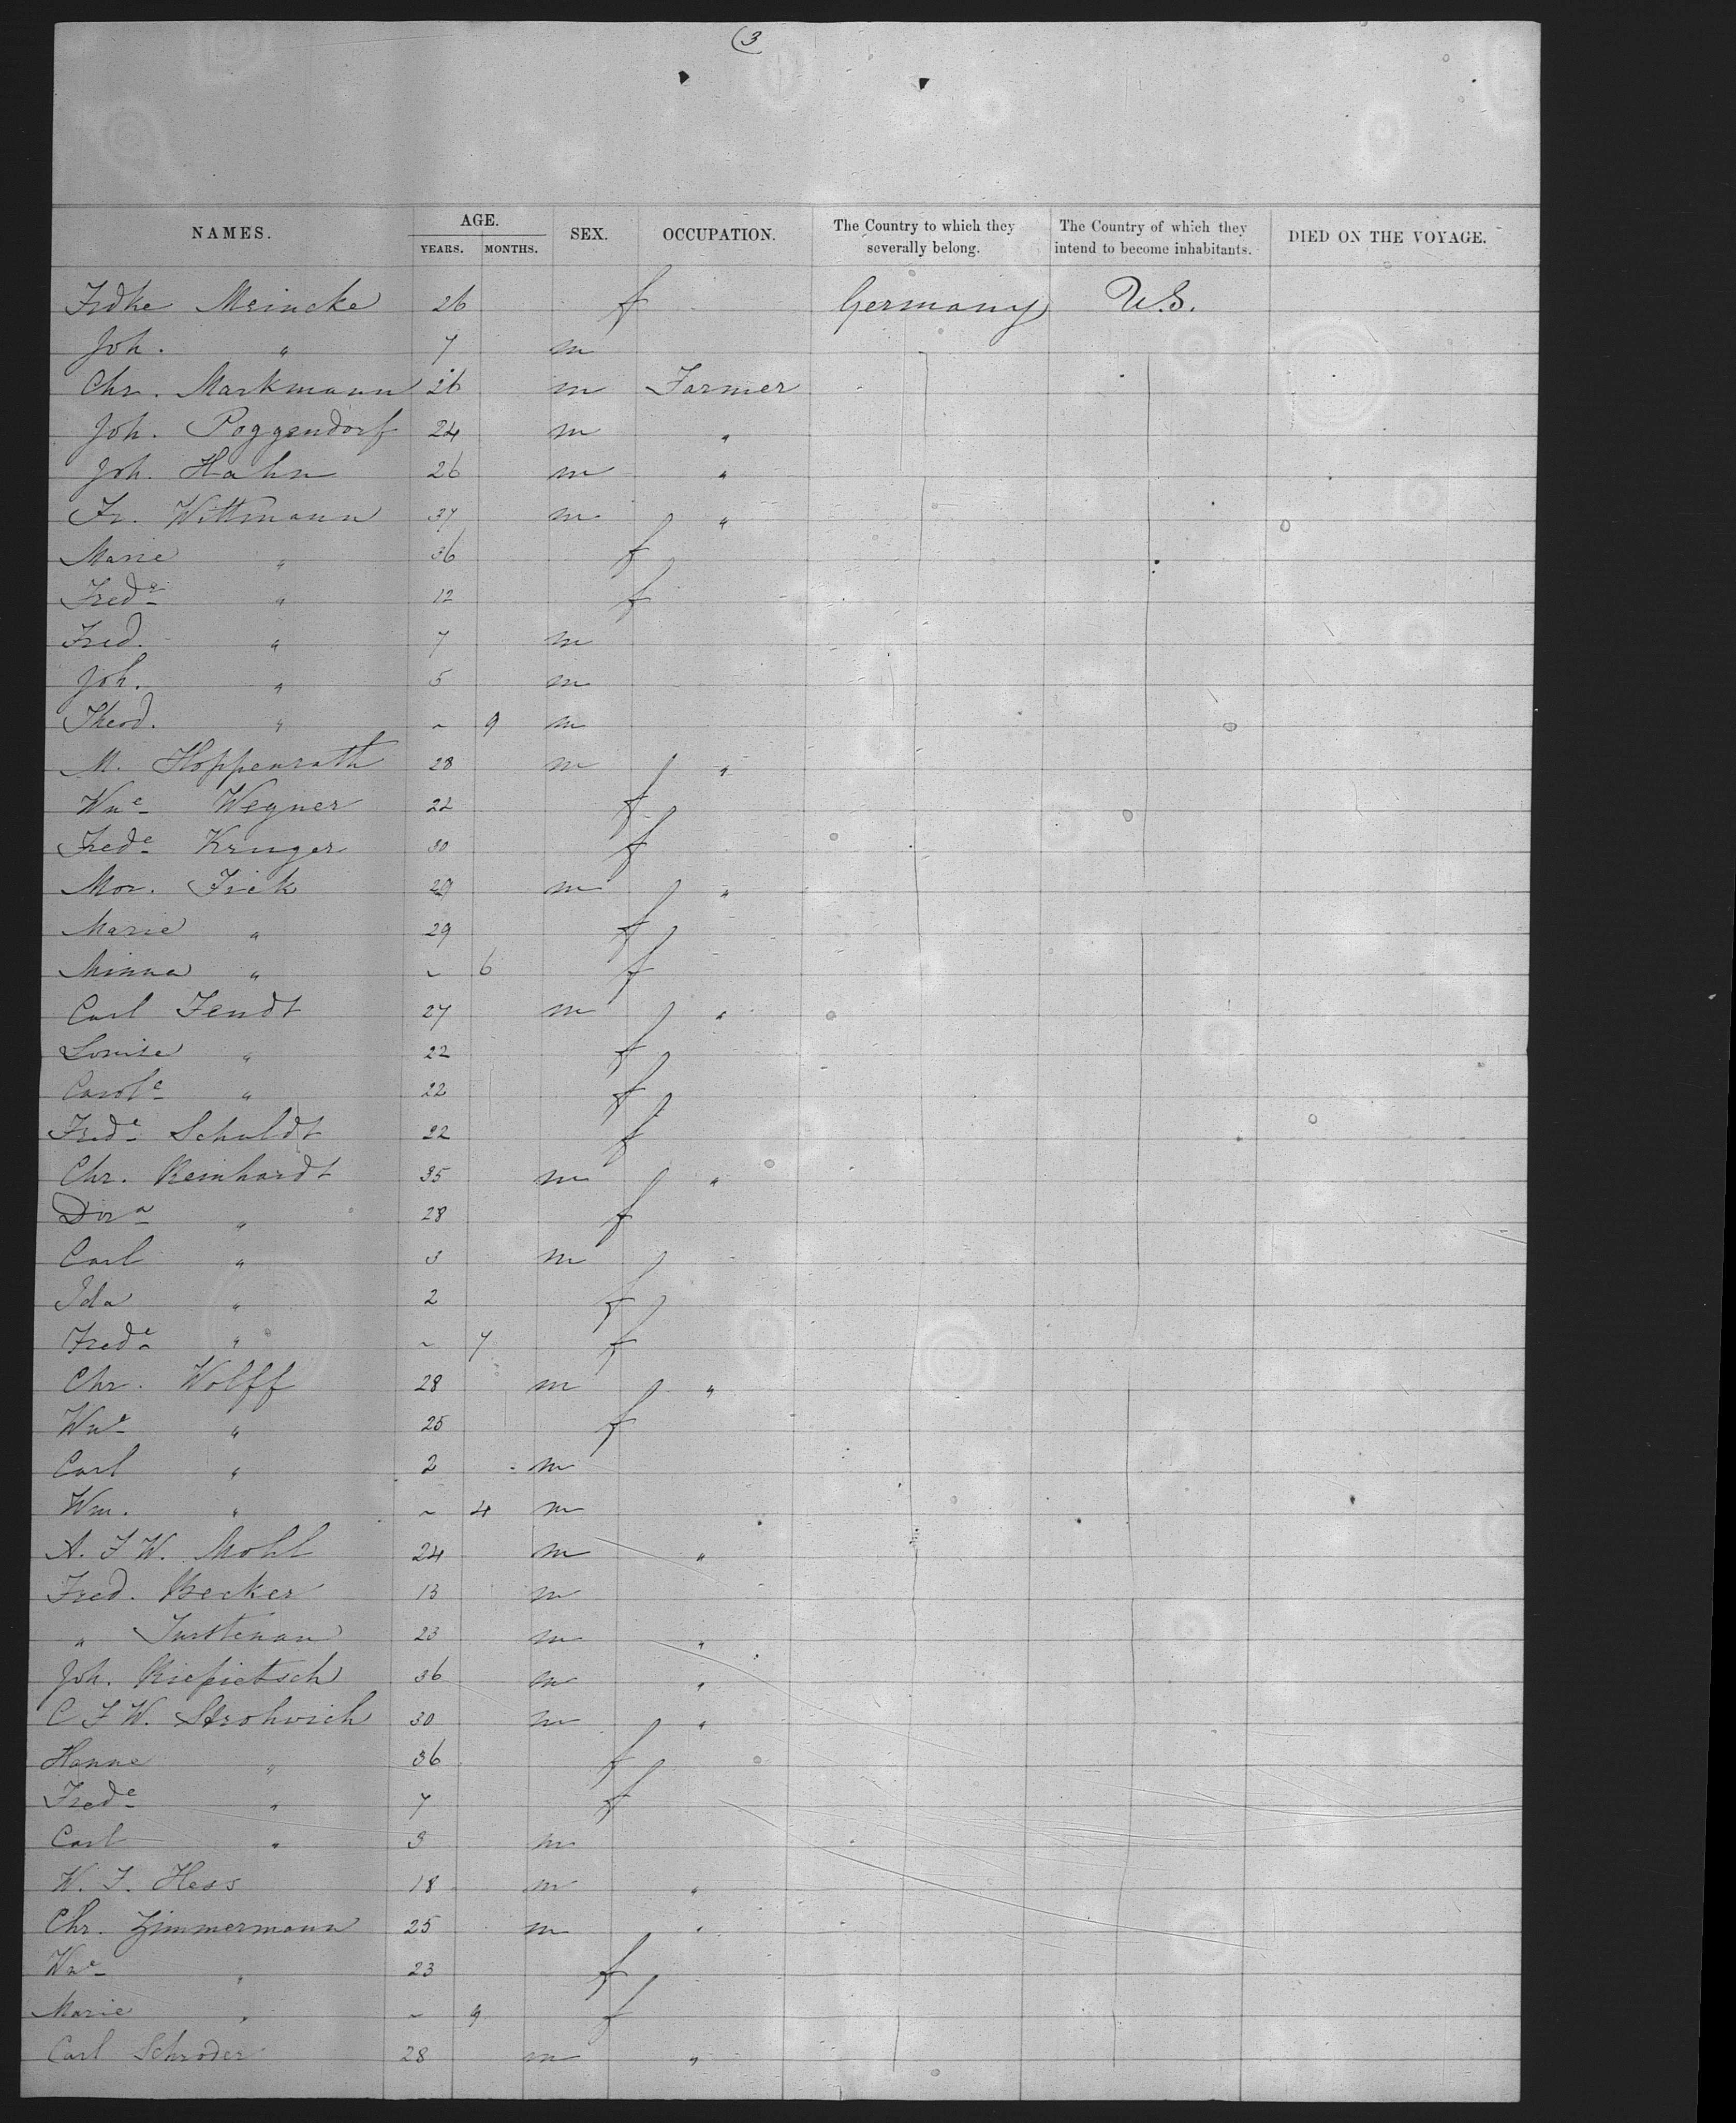 (3
NAMES. AGE. YEARS. MONTHS. SEX. OCCUPATION. The Country to which they severally belong. The Country of which they intend to become inhabitants. DIED ON THE VOYAGE.
Frdke Meincke 26 f Germany U.S.
Joh. " 7 m
Chr. Markmann 26 m Farmer
Joh. Poggendorf 24 m "
Joh. Hahn 26 m "
Fr. Wittmann 37 m "
Marie " 36 f
Fredᵉ " 12 f
Fred. " 7 m
Joh. " 5 m
Theod. " ~ 9 m
M. Hoppenrath 28 m "
Wmᵉ Wegner 22 f
Fredᵉ Kruger 30 f
Mor. Frick 29 m "
Marie " 29 f
Minna " ~ 6 f
Carl Fendt 27 m "
Louise " 22 f
Carolᵉ " 22 f
Fredᵉ Schuldt 22 f
Chr. Reinhardt 35 m "
Dorᵃ " 28 f
Carl " 3 m
Ida " 2 f
Fredᵉ " ~ 7 f
Chr. Wolff 28 m "
Wmᵉ " 25 f
Carl " 2 m
Wm. " ~ 4 m
A. F W. Mohl 24 m "
Fred. Becker 13 m
" Furstenau 23 m "
Joh. 36 m "
C F W. 30 m "
Hanne " 36 f
Fredᵉ " 7 f
Carl " 3 m
W. F. Hess 18 m "
Chr. Zimmermann 25 m "
Wmᵉ " 23 f
Marie " ~ 9 f
Carl Schroder 28 m "